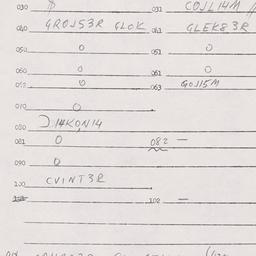 030 031 COJL14M
040 GROJ53R GLOK 041 GLEK83R
050 0 051 0
060 0 061 0
0 063 GOJ15M
070 0
080 J14KQN14
081 0 082 —
090 0
100 CVINT3R
102 —